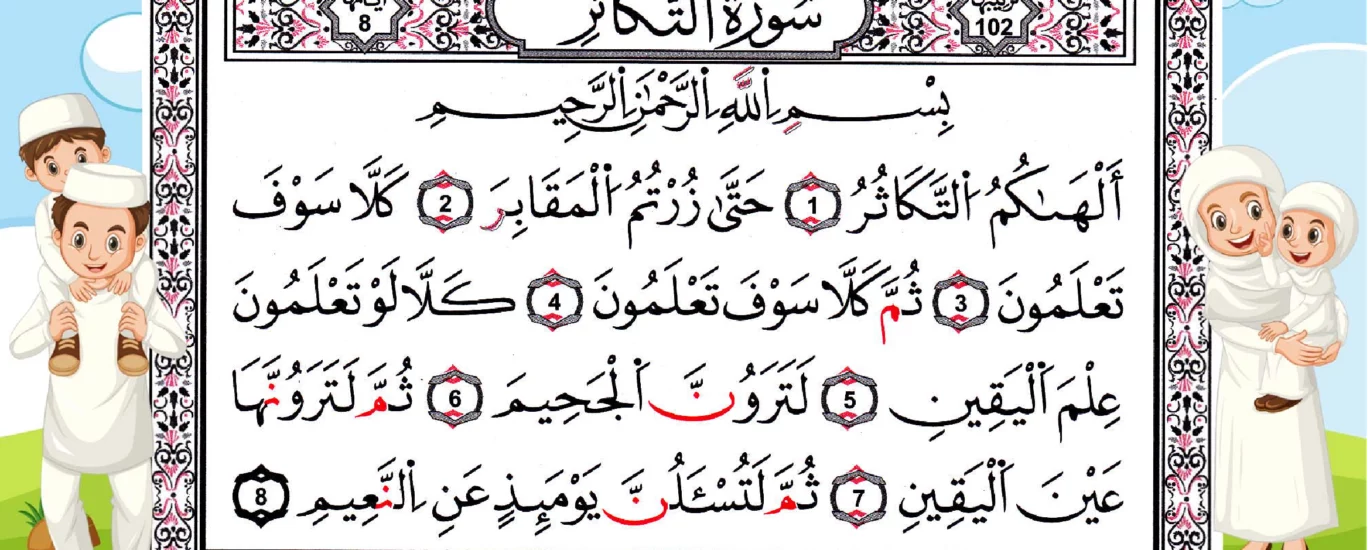 آياتها 8 سورة التكاثر ترتيبها 102
بِسْمِ اِ۬للَّهِ اِ۬لرَّحْمَٰنِ اِ۬لرَّحِيمِ
أَلْهَىٰكُمُ اُ۬لتَّكَاثُرُ 1 حَتَّىٰ زُرْتُمُ اُ۬لْمَقَابِرَ 2 كَلَّا سَوْفَ
تَعْلَمُونَ 3 ثُمَّ كَلَّا سَوْفَ تَعْلَمُونَ 4 كَلَّا لَوْ تَعْلَمُونَ
عِلْمَ اَ۬لْيَقِينِ 5 لَتَرَوُنَّ اَ۬لْجَحِيمَ 6 ثُمَّ لَتَرَوُنَّهَا
عَيْنَ اَ۬لْيَقِينِ 7 ثُمَّ لَتُسْـَٔلُنَّ يَوْمَئِذٍ عَنِ اِ۬لنَّعِيمِ 8